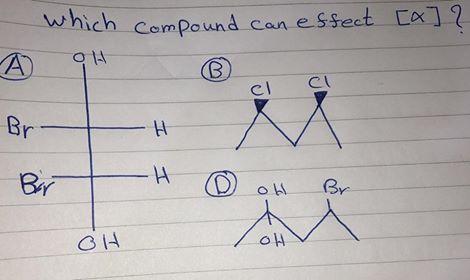 which compound can effect [α]?
A
OH
Br H
Br H
OH
B
Cl Cl
D
OH Br
OH